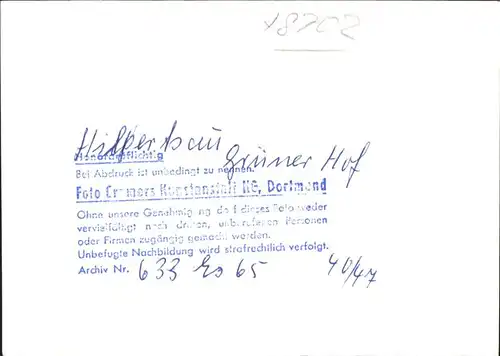 x8702
Hilpertsau
Grüner Hof
Honorarpflichtig
Bei Abdruck ist unbedingt zu nennen.
Foto Cramers Kunstanstalt KG, Dortmund
Ohne unsere Genehmigung darf dieses Foto weder
vervielfältigt noch dritten, unberufenen Personen
oder Firmen zugängig gemacht werden.
Unbefugte Nachbildung wird strafrechtlich verfolgt.
Archiv Nr. 633 Es 65
40/47